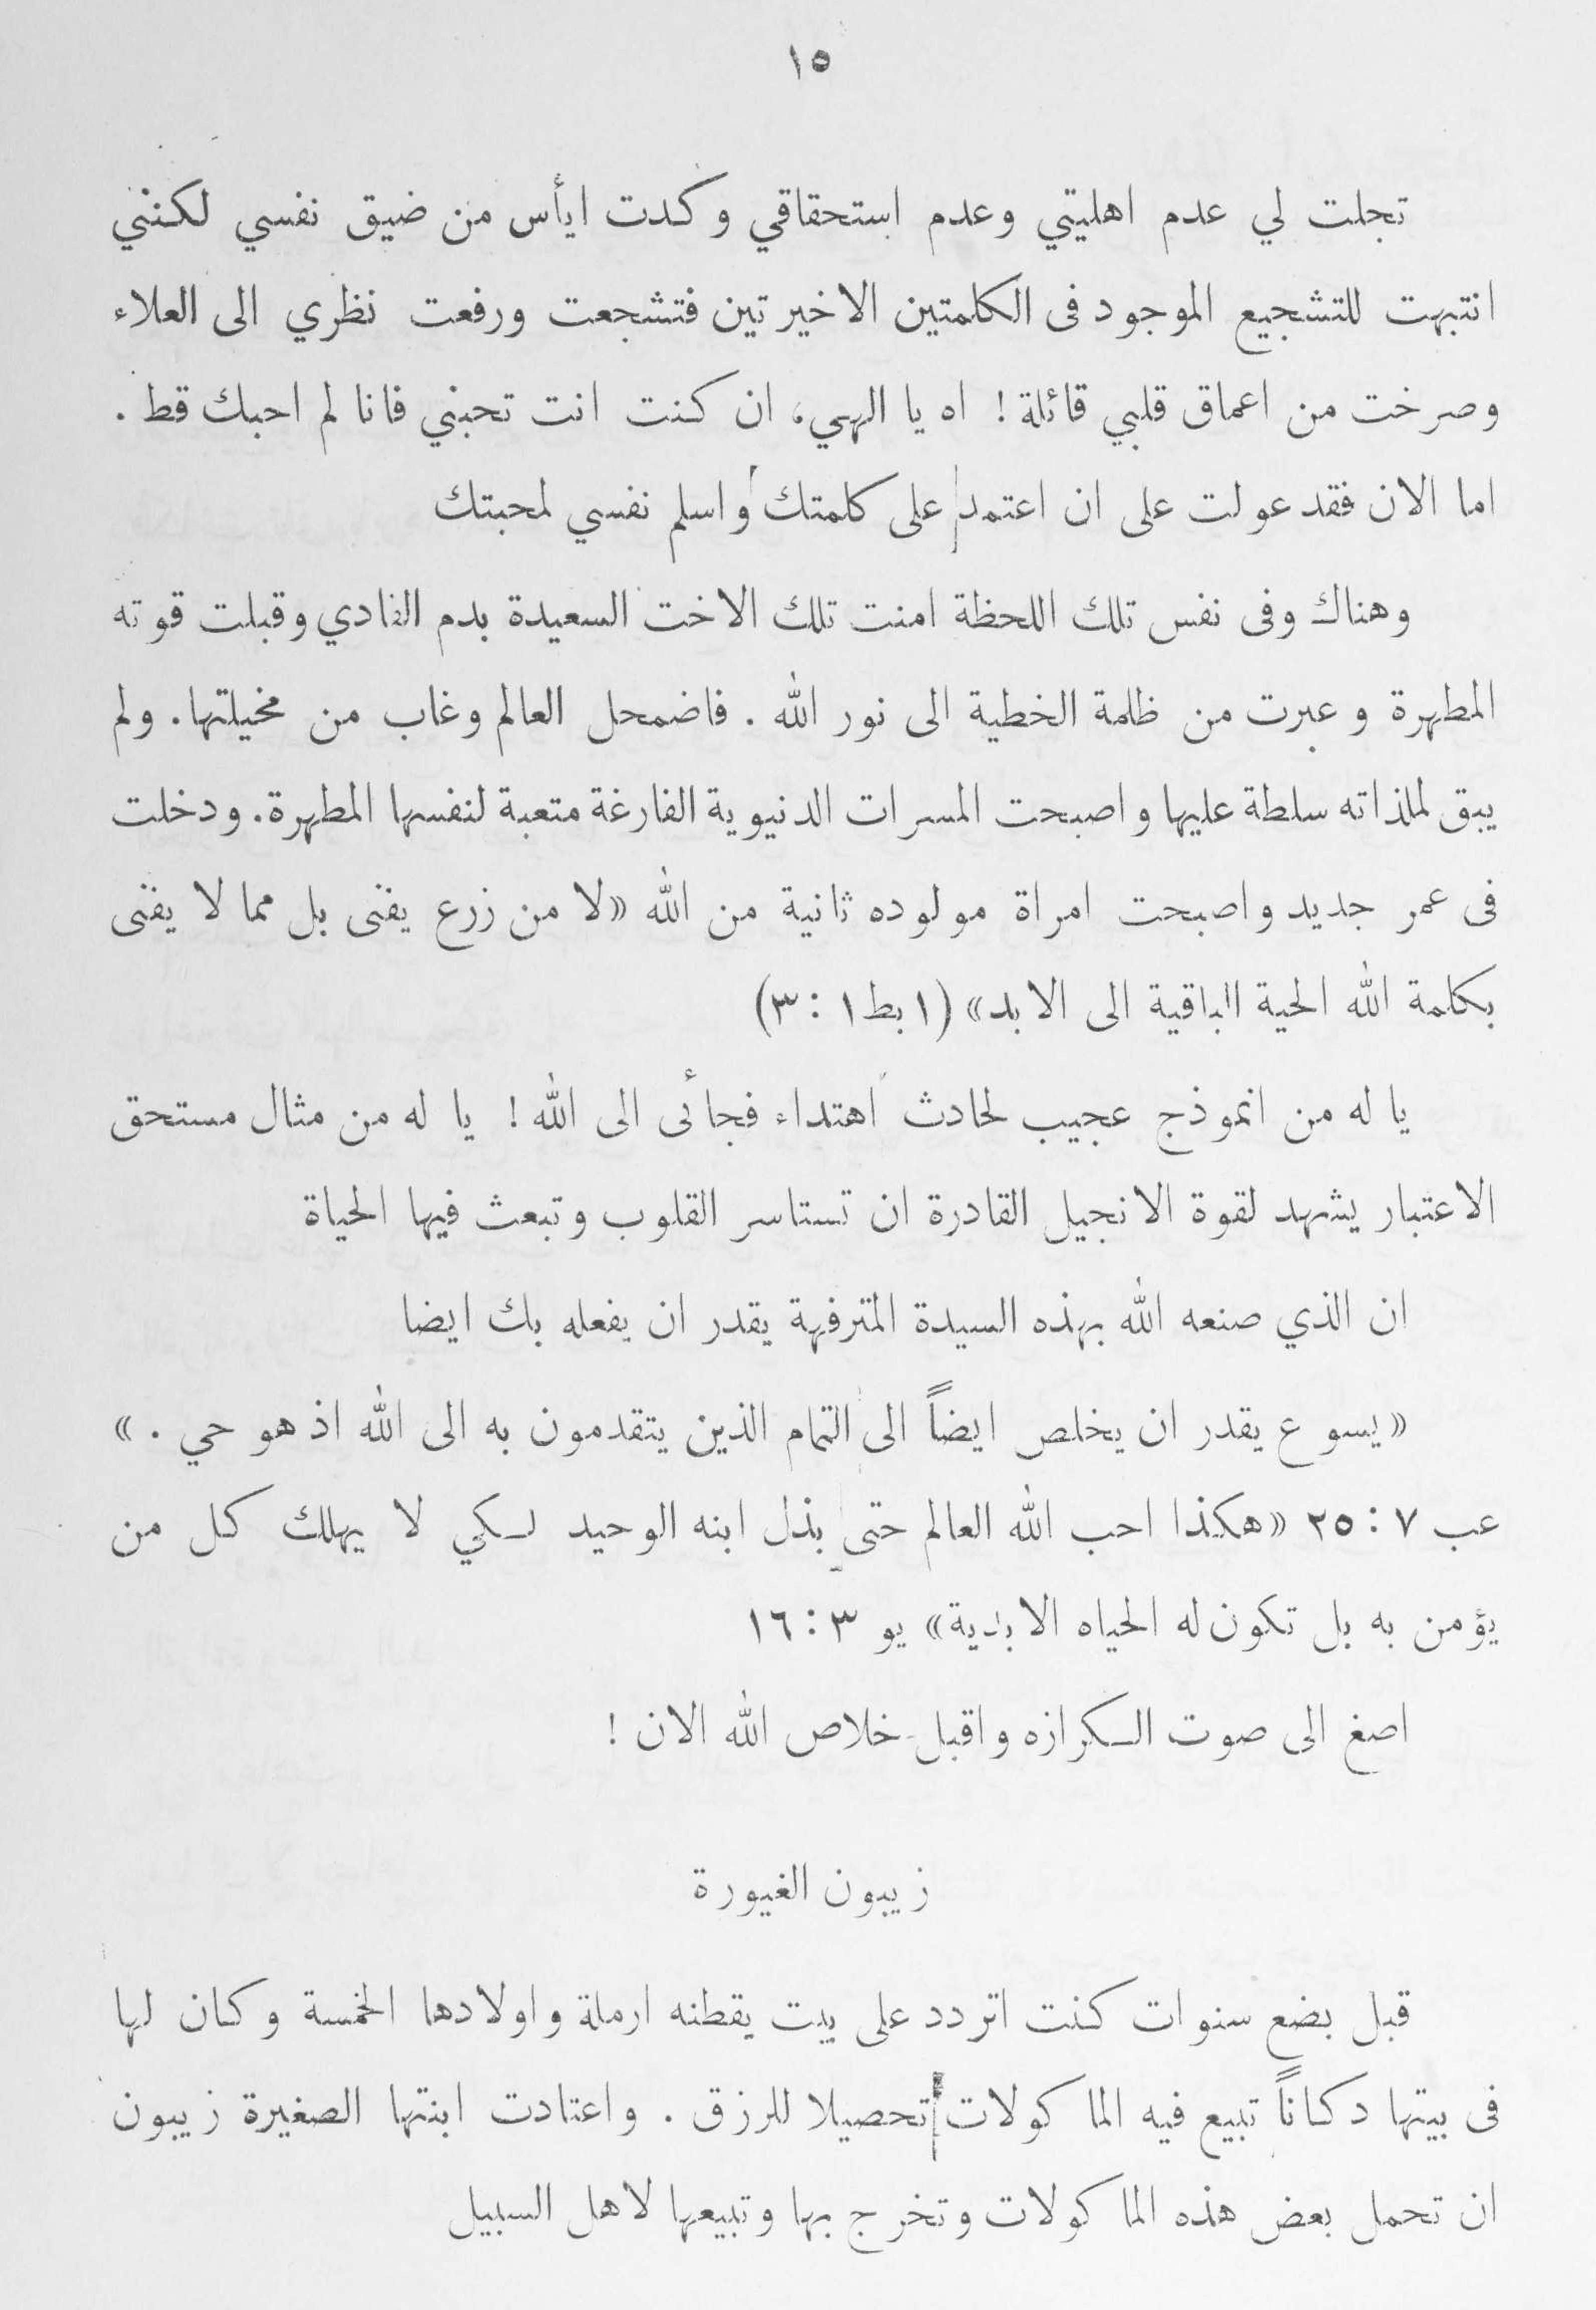 ١٥
تجلت لي عدم اهليتي وعدم استحقاقي وكدت ايأس من ضيق نفسي لكنني
انتبهت للتشجيع الموجود فى الكلمتين الاخيرتين فتشجعت ورفعت نظري الى العلاء
وصرخت من اعماق قلبي قائلة ! اه يا الهي، ان كنت انت تحبني فانا لم احبك قط .
اما الان فقد عولت على ان اعتمد على كلمتك واسلم نفسي لمحبتك
وهناك وفى نفس تلك اللحظة امنت تلك الاخت السعيدة بدم الفادي وقبلت قوته
المطهرة وعبرت من ظلمة الخطية الى نور الله . فاضمحل العالم وغاب من مخيلتها . ولم
يبق لملذاته سلطة عليها واصبحت المسرات الدنيوية الفارغة متعبة لنفسها المطهرة . ودخلت
فى عمر جديد واصبحت امراة مولوده ثانية من الله «لا من زرع يفنى بل مما لا يفنى
بكلمة الله الحية الباقية الى الابد» (١ بط ١ : ٣)
يا له من انموذج عجيب لحادث اهتداء فجأئى الى الله ! يا له من مثال مستحق
الاعتبار يشهد لقوة الانجيل القادرة ان تستاسر القلوب وتبعث فيها الحياة
ان الذي صنعه الله بهذه السيدة المترفهة يقدر ان يفعله بك ايضا
«يسوع يقدر ان يخلص ايضاً الى التمام الذين يتقدمون به الى الله اذ هو حي . »
عب ٧ : ٢٥ «هكذا احب الله العالم حتى بذل ابنه الوحيد لكي لا يهلك كل من
يؤمن به بل تكون له الحياه الابدية» يو ٣ : ١٦
اصغ الى صوت الكرازه واقبل خلاص الله الان !
زيبون الغيورة
قبل بضع سنوات كنت اتردد على بيت يقطنه ارملة واولادها الخمسة وكان لها
فى بيتها دكاناً تبيع فيه الماكولات تحصيلا للرزق . واعتادت ابنتها الصغيرة زيبون
ان تحمل بعض هذه الماكولات وتخرج بها وتبيعها لاهل السبيل